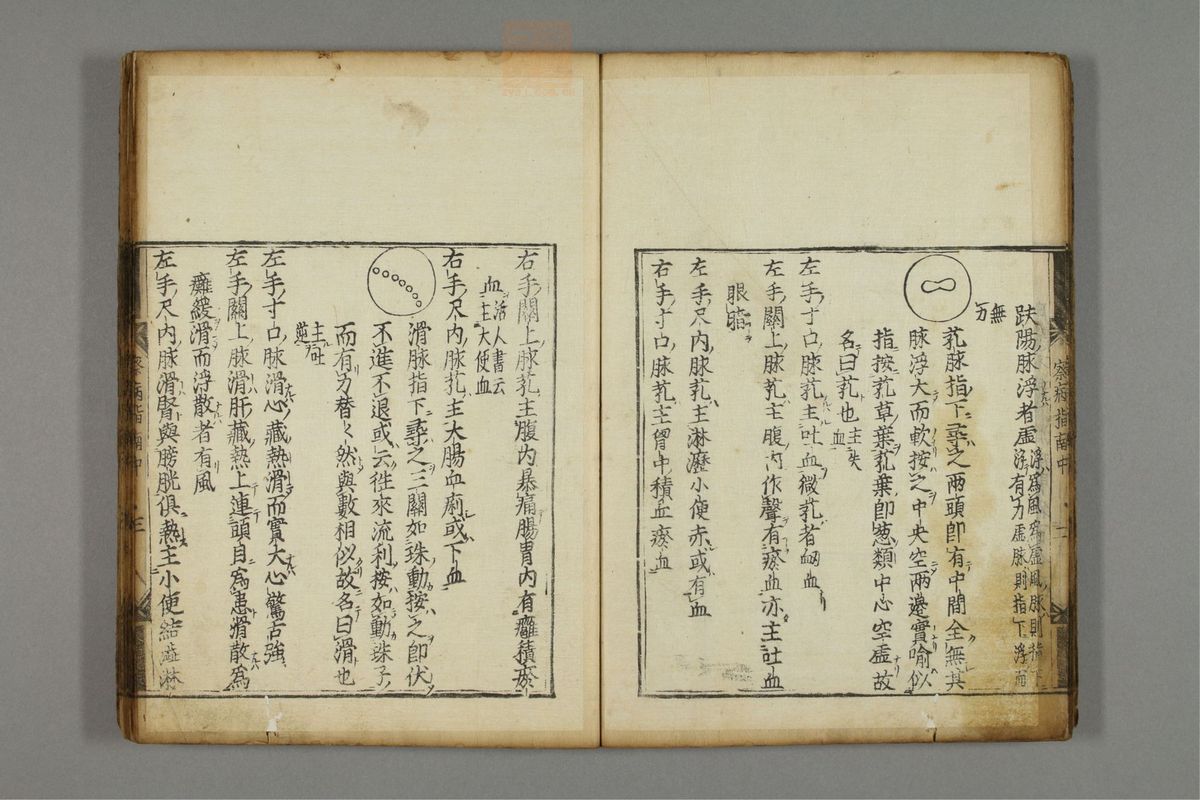 趺陽脉浮者虛浮爲風爲虛風脉則指下浮有力虛脉則指下浮而
無力
芤脉指下尋之兩頭卽有中間全無其
脉浮大而軟按之中央空兩邊實喻似
指按芤草葉芤葉卽葱類中心空虛故
名曰芤也主失血
左手寸口脉芤主吐血微芤者衂血
左手關上脉芤主腹内作聲有瘀血亦主吐血
眼暗
左手尺内脉芤主淋瀝小便赤或有血
右手寸口脉芤主胷中積血瘀血
察病指南中
二
右手關上脉芤主腹内暴痛腸胃内有癰積瘀
血活人書云主大便血
右手尺内脉芤主大腸血痢或下血
滑脉指下尋之三關如珠動按之卽伏
不進不退或云徃來流利按如動珠子
而有力替〻然與數相似故名曰滑也
主吐逆
左手寸口脉滑心藏熱滑而實大心驚舌強
左手關上脉滑肝藏熱上連頭目爲患滑散爲
癱緩滑而浮散者有風
左手尺内脉滑腎與膀胱俱熱主小便結澁淋
察病指南中
三